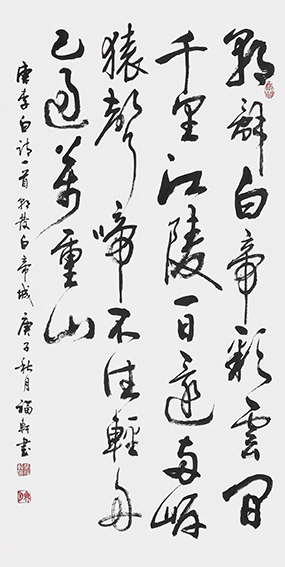 朝辭白帝彩雲間
千里江陵一日還兩岸
猿聲啼不住輕舟
已過萬重山
唐李白詩一首朝發白帝城 庚子秋月 福軒書